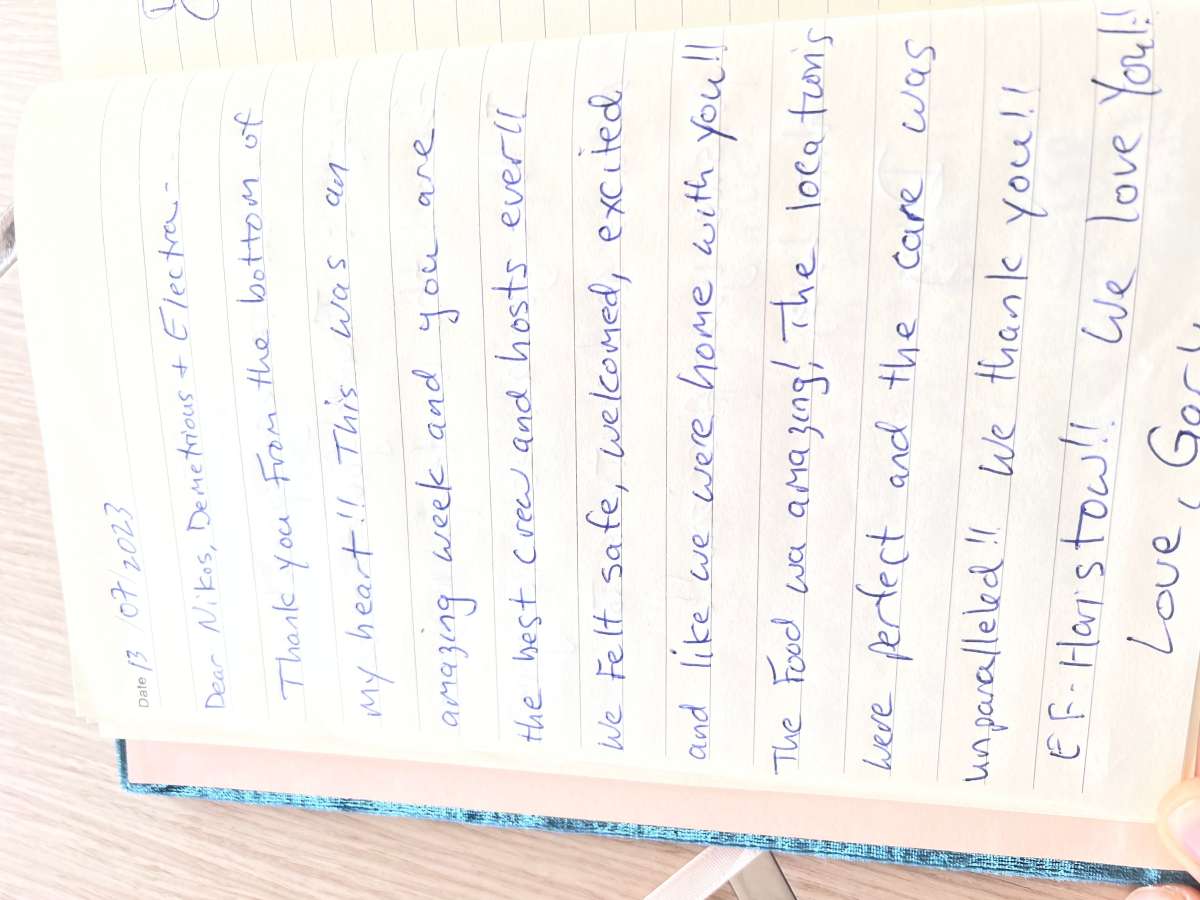 Date 13/07/2023
Dear Nikos, Demetrious + Electra -
Thank you From the bottom of
my heart!! This was an
amazing week and you are
the best crew and hosts ever!!
We Felt safe, welcomed, excited
and like we were home with you!!
The Food wa amazing! The locations
were perfect and the care was
unparalleled!! We thank you!!
EF-Haristow!! We love You!!
Love,